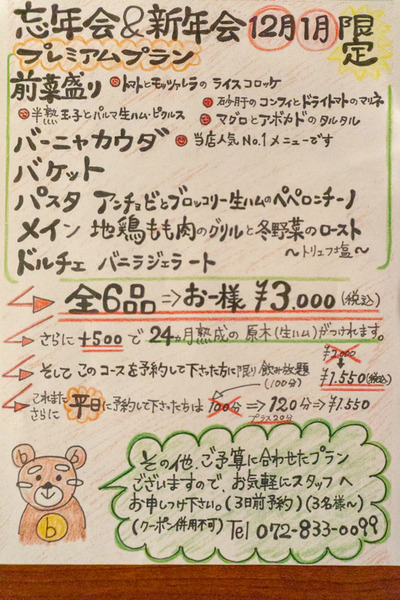 忘年会&新年会 12月1月限定
プレミアムプラン
前菜盛り トマトとモッツァレラの ライスコロッケ
砂肝のコンフィとドライトマトのマリネ
半熟玉子とパルマ生ハム・ピクルス
マグロとアボカドのタルタル
バーニャカウダ 当店人気No.1メニューです
バケット
パスタ アンチョビとブロッコリー生ハムのペペロンチーノ
メイン 地鶏もも肉のグリルと冬野菜のロースト
〜トリュフ塩〜
ドルチェ バニラジェラート
全6品⇒お一様 ¥3,000(税込)
さらに +500 で 24ヵ月熟成の 原木(生ハム)がつけれます。
¥2,000
そして このコースを予約して下さた方に限り 飲み放題
(100分)
¥1,550(税込)
これまたさらに 平日に予約して下さった方は 100分⇒120分⇒¥1,550
プラス20分
その他、ご予算に合わせたプラン
ございますので、お気軽にスタッフへ
お申しつけ下さい。(3日前予約)(3名様〜)
(クーポン併用不可) Tel 072-833-0099
b b
b